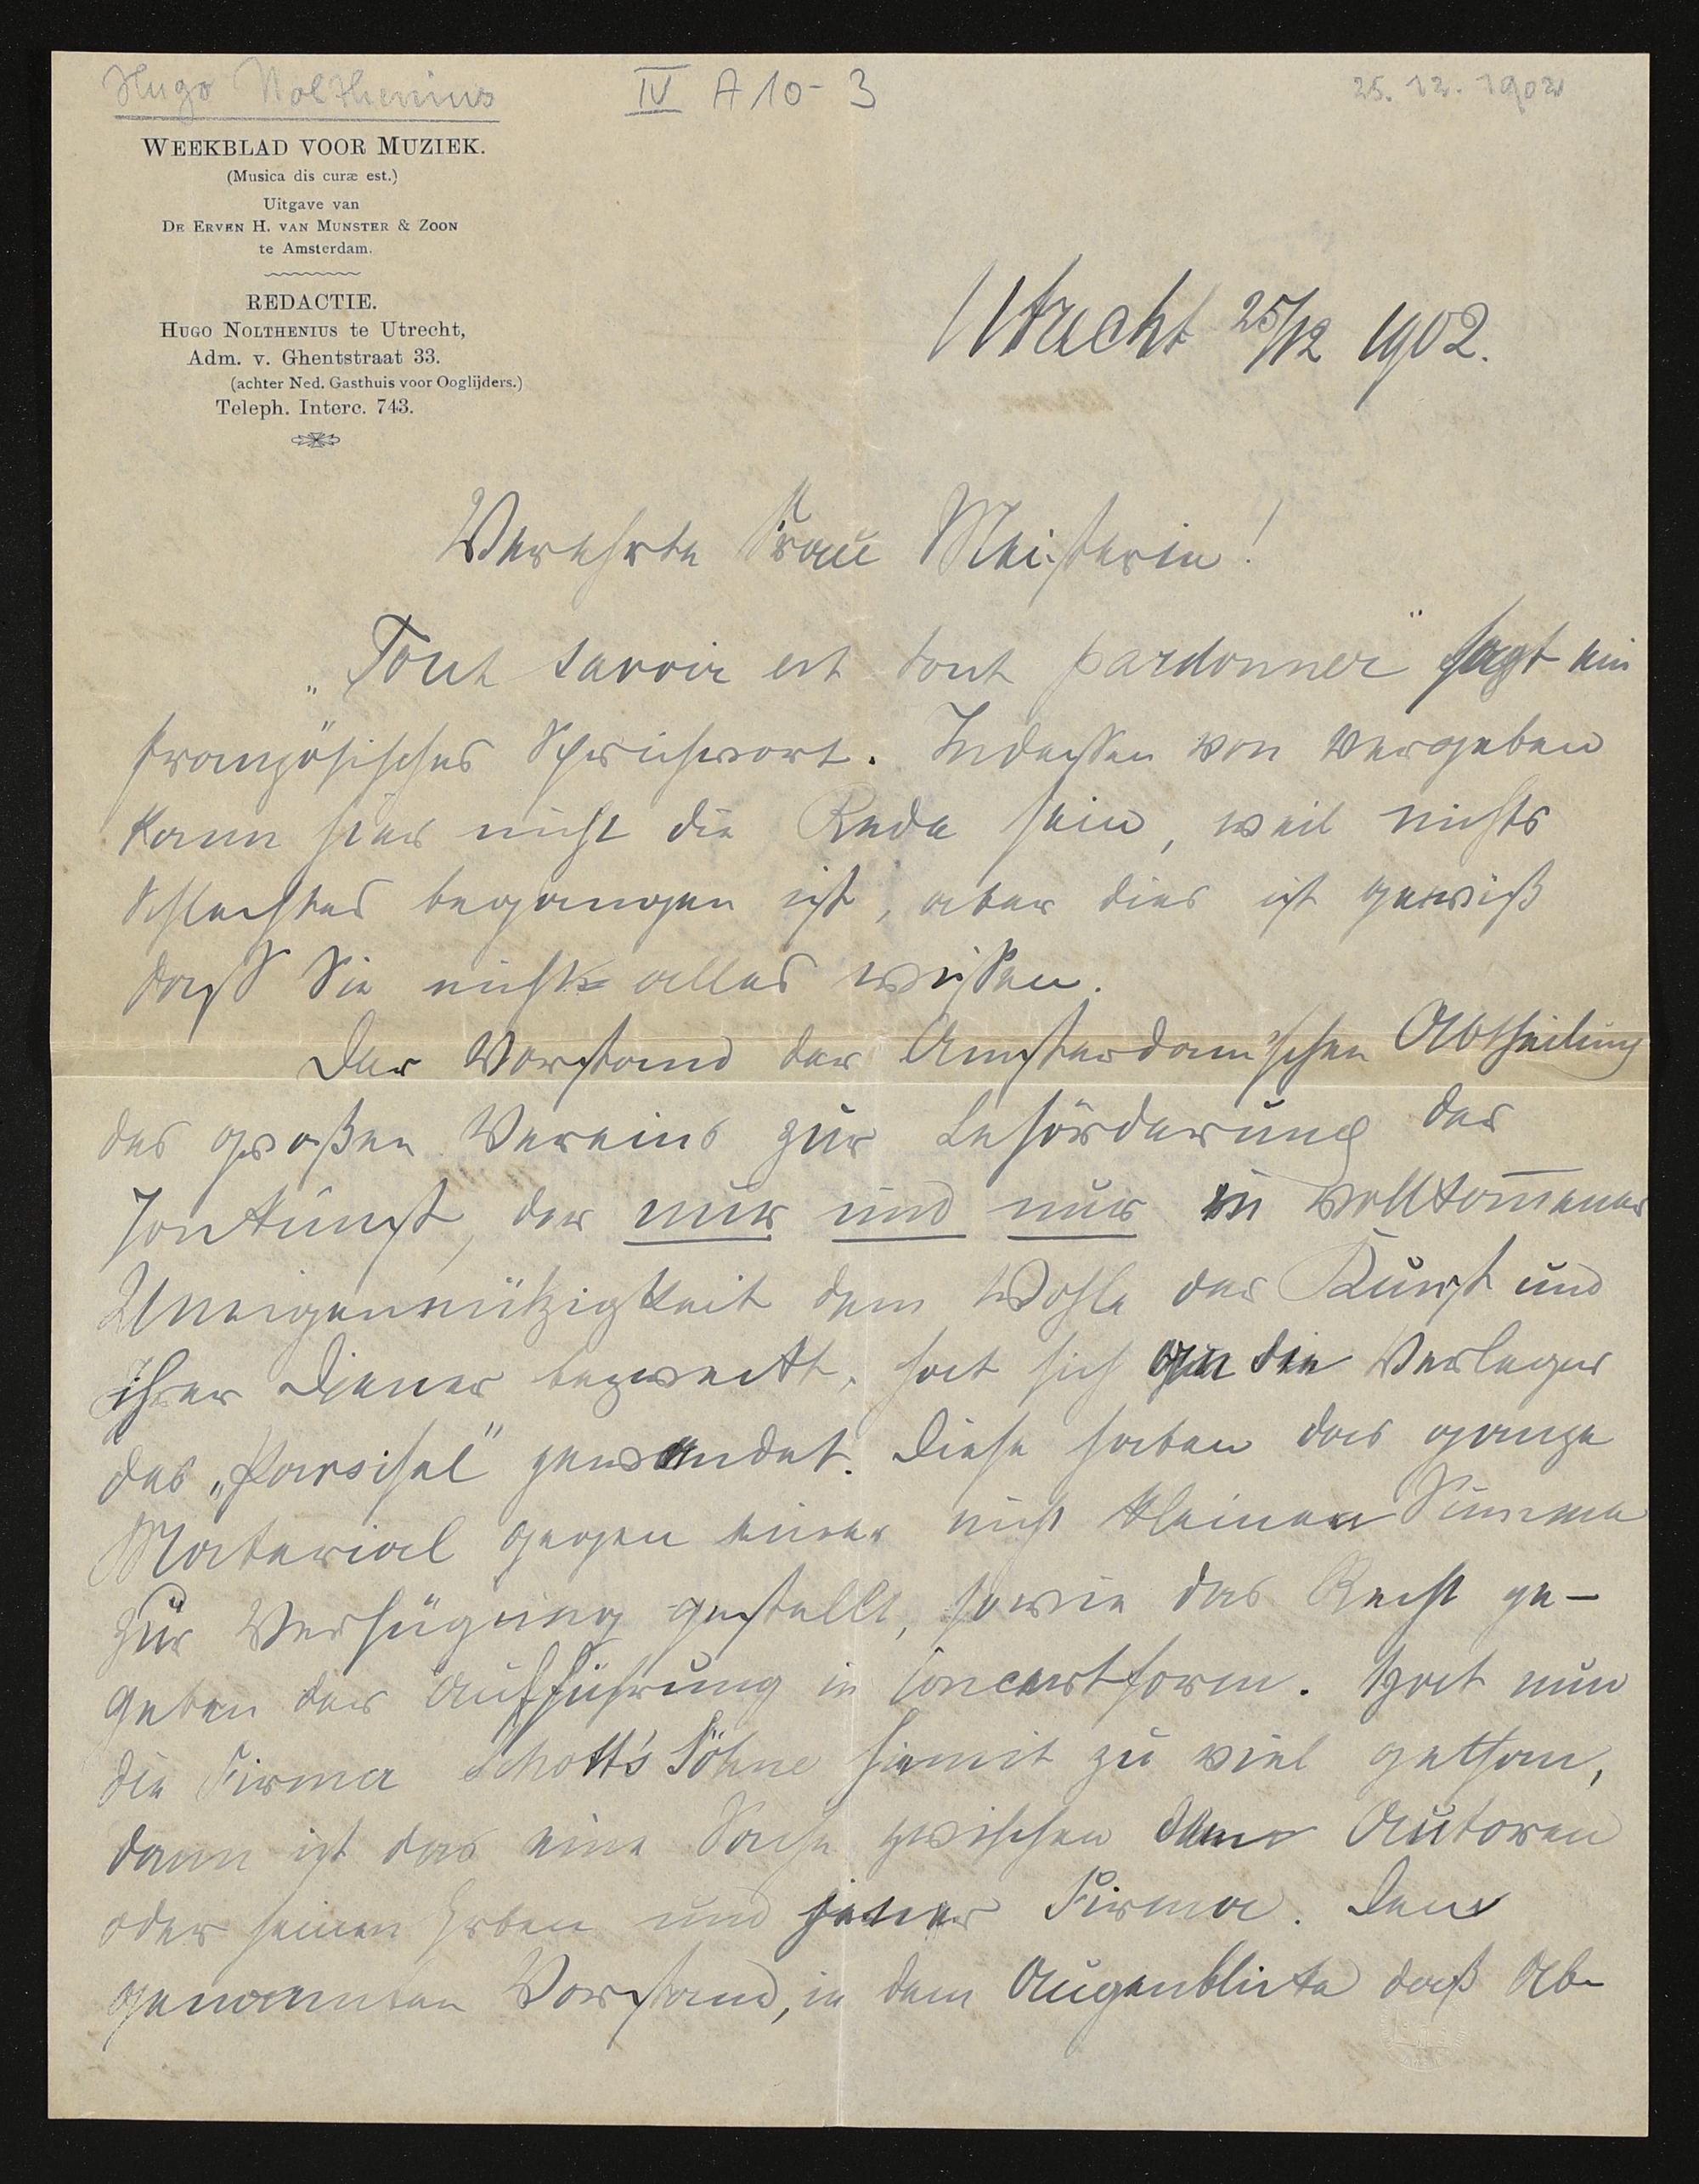 Hugo Nolthenius
IV A 10-3
25.12.1902
WEEKBLAD VOOR MUZIEK.
(Musica dis curæ est.)
Uitgave van
DE ERVEN H. VAN MUNSTER & ZOON
te Amsterdam.
REDACTIE.
HUGO NOLTHENIUS te Utrecht,
Adm. v. Ghentstraat 33.
(achter Ned. Gasthuis voor Ooglijders.)
Teleph. Interc. 743.
Utrecht 25/12 1902.
Verehrte Frau Meisterin!
„Tout savoir est tout pardonner" sagt ein
französisches Sprichwort. Indessen von vergeben
kann hier nicht die Rede sein, weil nichts
Schlechtes begangen ist, aber dies ist gewiß
dass Sie nicht alles wissen.
Der Vorstand der Amsterdam'schen Abtheilung
des großen Vereins zur Beförderung der
Tonkunst, der nur und nur in vollkom̄ener
Uneigennützigkeit dem Wohle der Kunst und
ihrer Diener bezweckt, hat sich an die Verleger
des „Parsifal" gewandt. Diese haben das ganze
Material gegen einer nicht kleinen Summe
zur Verfügung gestellt, sowie das Recht ge-
geben der Aufführung in Concertform. Hat nun
die Firma Schott's Söhne hiemit zu viel gethan,
dann ist das eine Sache zwischen dem Autoren
oder seinen Erben und jener Firma. Dem
genannten Vorstand, in dem Augenblicke daß Ab-